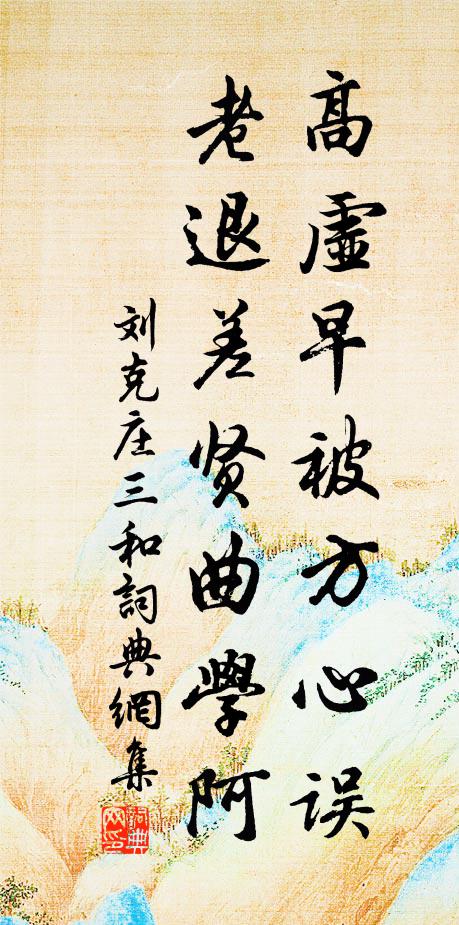 高虛早被方心误
老退差贤曲學阿
刘克庄三和詞典網集
詞典
网印